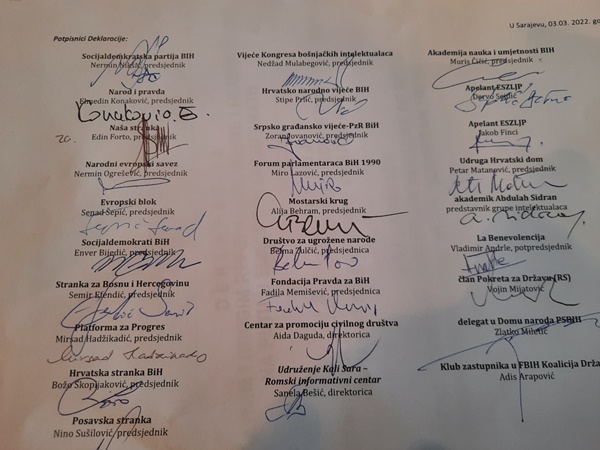 U Sarajevu, 03.03. 2022. go
Potpisnici Deklaracije:
Socijaldemokratska partija BIH
Nermin Nikšić, predsjednik
Narod i pravda
Elmedin Konaković, predsjednik
Konaković E.
Naša stranka
Edin Forto, predsjednik
Narodni evropski savez
Nermin Ogrešević, predsjednik
Evropski blok
Senad Šepić, predsjednik
Šepić Senad
Socijaldemokrati BiH
Enver Bijedić, predsjednik
Stranka za Bosnu i Hercegovinu
Semir Efendić, predsjednik
Platforma za Progres
Mirsad Hadžikadić, predsjednik
Mirsad Hadzikadic
Hrvatska stranka BiH
Božo Skopljaković, predsjednik
Posavska stranka
Nino Sušilović, predsjednik
Vijeće Kongresa bošnjačkih intelektualaca
Nedžad Mulabegović, predsjednik
Hrvatsko narodno vijeće BIH
Stipe Prlić, predsjednik
Srpsko građansko vijeće-PzR BiH
Zoran Jovanović, predsjednik
Forum parlamentaraca BiH 1990
Miro Lazović, predsjednik
Mostarski krug
Alija Behram, predsjednik
Društvo za ugrožene narode
Belma Zulčić, predsjednica
Fondacija Pravda za BiH
Fadila Memišević, predsjednica
Centar za promociju civilnog društva
Aida Daguda, direktorica
Udruženje Kali Sara –
Romski informativni centar
Sanela Bešić, direktorica
Akademija nauka i umjetnosti BIH
Muris Čičić, predsjednik
Apelant ESZLJP
Dervo Sejdić
Apelant ESZLJP
Jakob Finci
Udruga Hrvatski dom
Petar Matanović, predsjednik
akademik Abdulah Sidran
predstavnik grupe intelektualaca
La Benevolencija
Vladimir Andrle, potpredsjednik
član Pokreta za Državu (RS)
Vojin Mijatović
delegat u Domu naroda PSBIH
Zlatko Miletić
Klub zastupnika u FBIH Koalicija Drža
Adis Arapović